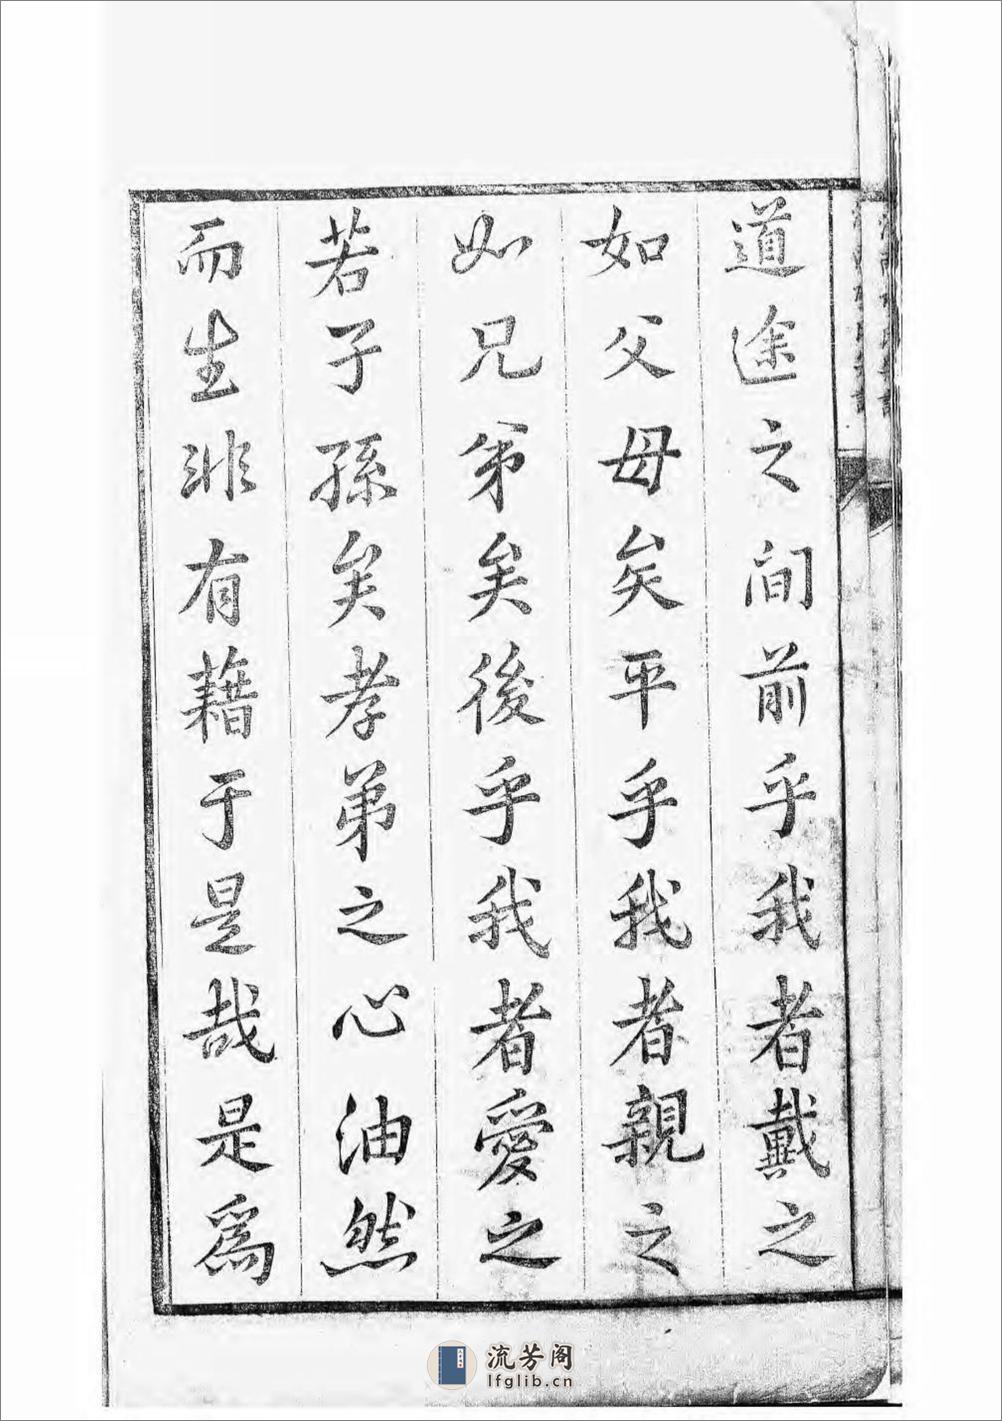 道途之间前乎我者戴之
如父母矣平乎我者親之
如兄弟矣後乎我者愛之
若子孫矣孝弟之心油然
而生非有藉于是哉是爲
流芳阁
lfglib.cn